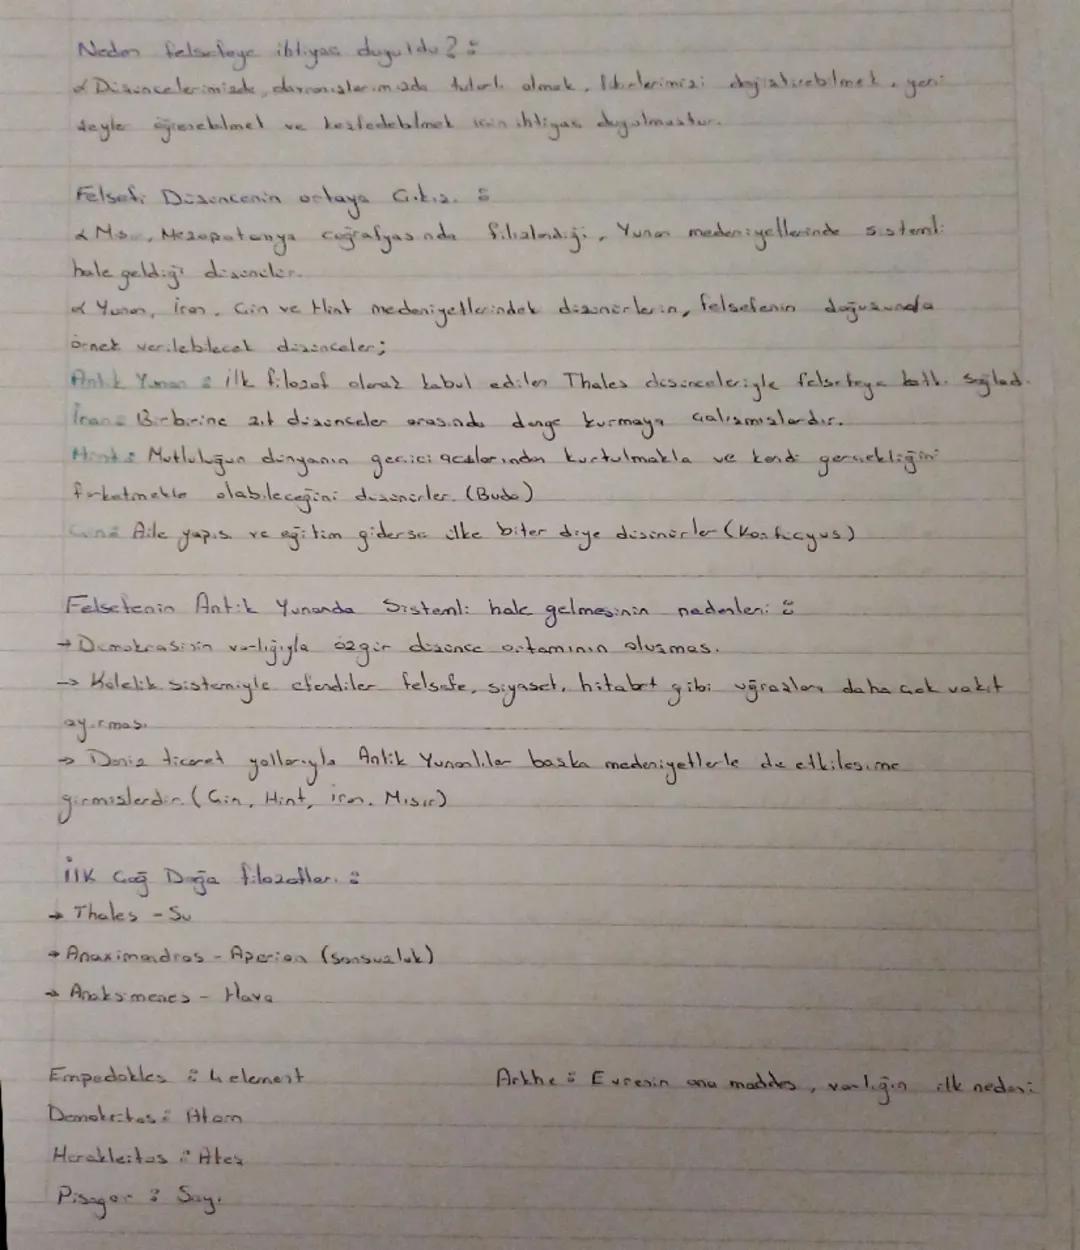 Neden felsefeye ihtiyaç duyuldu? :
Düşüncelerimizde, davranışlarımızda tutarlı olmak, fikirlerimizi değiştirebilmek, yeni
şeyler öğrenebilmek ve keşfedebilmek için ihtiyaç duyulmuştur.
Felsefi Düşüncenin ortaya Çıkışı :
Mı , Mezopotamya coğrafyasında filizlendiği, Yunan medeniyetlerinde sistemli
hale geldiği düşünülür.
Yunan, İran, Çin ve Hint medeniyetlerindeki düşünürlerin, felsefenin doğuşunda
örnek verilebilecek düşünceler;
Antik Yunan : ilk filozof olarak kabul edilen Thales düşünceleriyle felsefeye katkı sağladı.
İran : Birbirine zıt düşünceler arasında denge kurmaya çalışmışlardır.
Hint : Mutluluğun dünyanın geçici acılarından kurtulmakla ve kendi gerçekliğini
farketmekle olabileceğini düşünürler. (Buda)
Çin : Aile yapısı ve eğitim giderse ülke biter diye düşünürler (Konfüçyus)
Felsefenin Antik Yunanda Sistemli hale gelmesinin nedenleri :
→ Demokrasinin varlığıyla özgür düşünce ortamının oluşması.
→ Kölelik sistemiyle efendiler felsefe, siyaset, hitabet gibi uğraşlara daha çok vakit
ayırması
→ Deniz ticaret yollarıyla Antik Yunanlılar başka medeniyetlerle de etkileşime
girmişlerdir. (Çin, Hint, iran, Mısır)
İlk Çağ Doğa filozofları :
→ Thales - Su
→ Anaximandros - Aperion (sonsuzluk)
→ Anaksimenes - Hava
Empedokles : 4 element Arkhe : Evrenin ana maddesi, varlığın ilk nedeni
Demokritos : Atom
Herakleitos : Ateş
Pisagor : Sayı